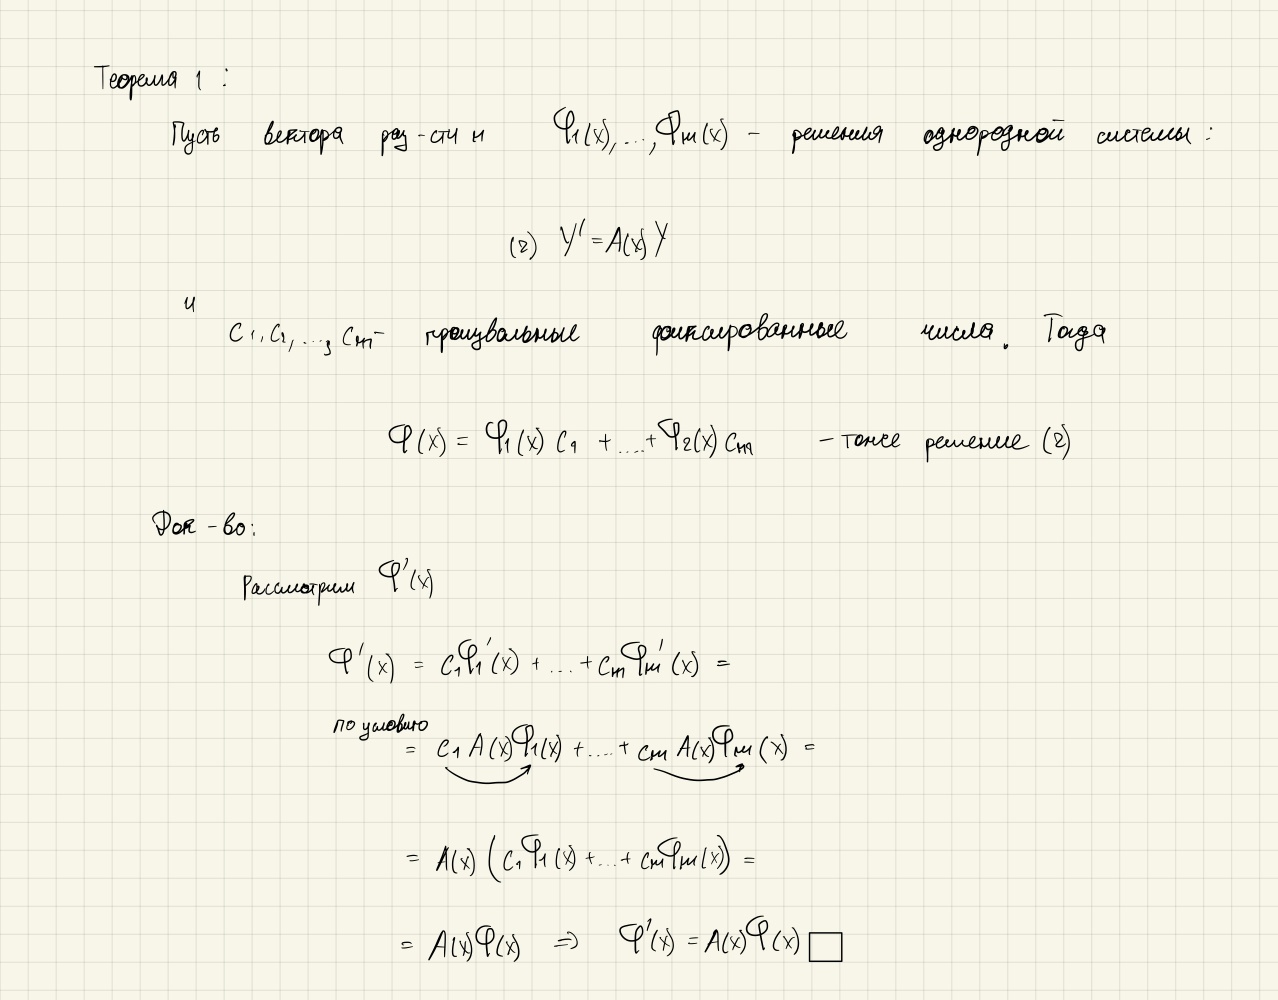 Теорема 1 :
Пусть вектора раз-сти n φ₁(x),...,φₘ(x) - решения однородной системы:
(2) Y' = A(x) Y
и
C₁, C₂, ..., Cₘ - произвольные фиксированные числа. Тогда
φ(x) = φ₁(x) C₁ + .... + φ₂(x) Cₘ - тоже решение (2)
Док-во:
Рассмотрим φ'(x)
φ'(x) = C₁φ₁'(x) + ... + Cₘφₘ'(x) =
по условию
= C₁ A(x)φ₁(x) + .... + Cₘ A(x)φₘ(x) =
= A(x) (C₁φ₁(x) + ... + Cₘφₘ(x)) =
= A(x)φ(x) => φ'(x) = A(x)φ(x) □